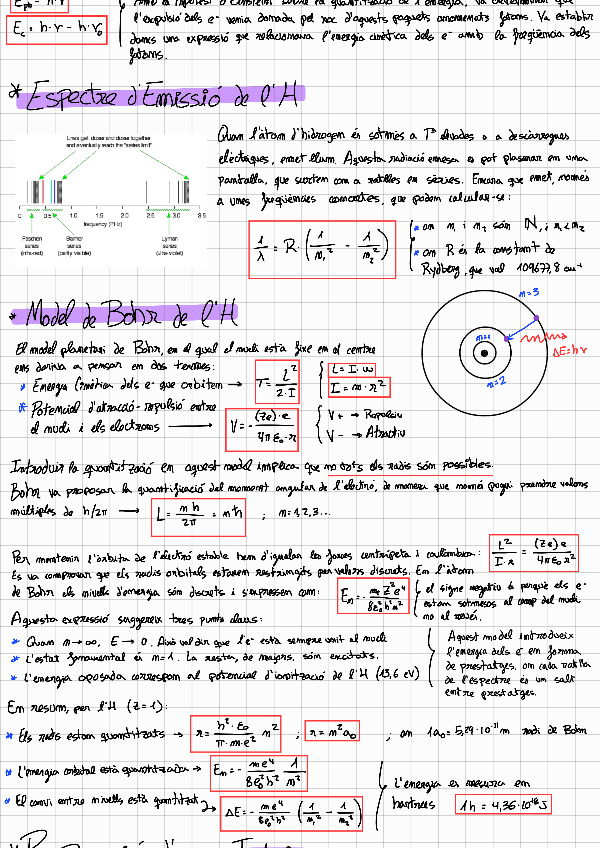 E_c = h·ν − h·ν₀
l'expulsió dels e⁻ venia donada pel xoc d'aquests paquets anomenats fotons. Va establir
doncs una expressió que relacionava l'energia cinètica dels e⁻ amb la freqüència dels
fotons.
* Espectre d'Emissió de l'H
Lines get closer and closer together
and eventually reach the "series limit"
0 0.5 1.0 1.5 2.0 2.5 3.0 3.5
frequency (PHz)
Paschen Balmer Lyman
series series series
(infra-red) (partly visible) (ultra-violet)
Quan l'àtom d'hidrogen és sotmès a Tª elevades o a descàrregues
elèctriques, emet llum. Aquesta radiació emesa es pot plasmar en una
pantalla, que surten com a ratlles en sèries. Encara que emet, només
a unes freqüències concretes, que poden calcular-se:
1/λ = R·(1/n₁² − 1/n₂²)
* on n₁ i n₂ són ℕ, i n₁<n₂
* on R és la constant de
Rydberg, que val 109677,8 cm⁻¹
* Model de Bohr de l'H
n=3
n=1
n=2
ΔE=hν
El model planetari de Bohr, en el qual el nucli està fixe en el centre
ens deriva a pensar en dos termes:
* Energia Cinètica dels e⁻ que orbiten → T = L²/2·I
L = I·ω
I = m·r²
* Potencial d'atracció-repulsió entre
el nucli i els electrons → V = −(Ze)·e/4πε₀·r
V + → Repulsiu
V − → Atractiu
Introduir la quantització en aquest model implica que no tots els radis són possibles.
Bohr va proposar la quantificació del moment angular de l'electró, de manera que només pugui prendre valors
múltiples de h/2π → L = nh/2π = nħ ; n=1,2,3...
Per mantenir l'òrbita de l'electró estable hem d'igualar les forces centrípeta i coulòmbica: L²/I·r = (Ze)e/4πε₀r²
Es va comprovar que els radis orbitals estaven restringits per valors discrets. En l'àtom
de Bohr els nivells d'energia són discrets i s'expressen com: E_n = −m_e Z²e⁴/8ε₀²h²n²
el signe negatiu és perquè els e⁻
estan sotmesos al camp del nucli
no al revés.
Aquesta expressió suggereix tres punts claus:
* Quan n→∞, E→0. Això val dir que l'e⁻ està sempre unit al nucli
* L'estat fonamental és n=1. La resta, de majors, són excitats.
* L'energia oposada correspon al potencial d'ionització de l'H (13,6 eV)
Aquest model introdueix
l'energia dels e⁻ en forma
de prestatges, on cada ratlla
de l'espectre és un salt
entre prestatges.
Em resum, per l'H (Z=1):
* Els radis estan quantitzats → r = h²·ε₀/π·m·e² n² ; r = n²a₀ ; on 1a₀ = 5,29·10⁻¹¹ m radi de Bohr
* L'energia orbital està quantitzada → E_n = −me⁴/8ε₀²h² 1/n²
* El canvi entre nivells està quantitzat → ΔE = −me⁴/8ε₀²h² (1/n₁² − 1/n₂²)
L'energia es mesura en
hartrees 1h = 4,36·10⁻¹⁸ J